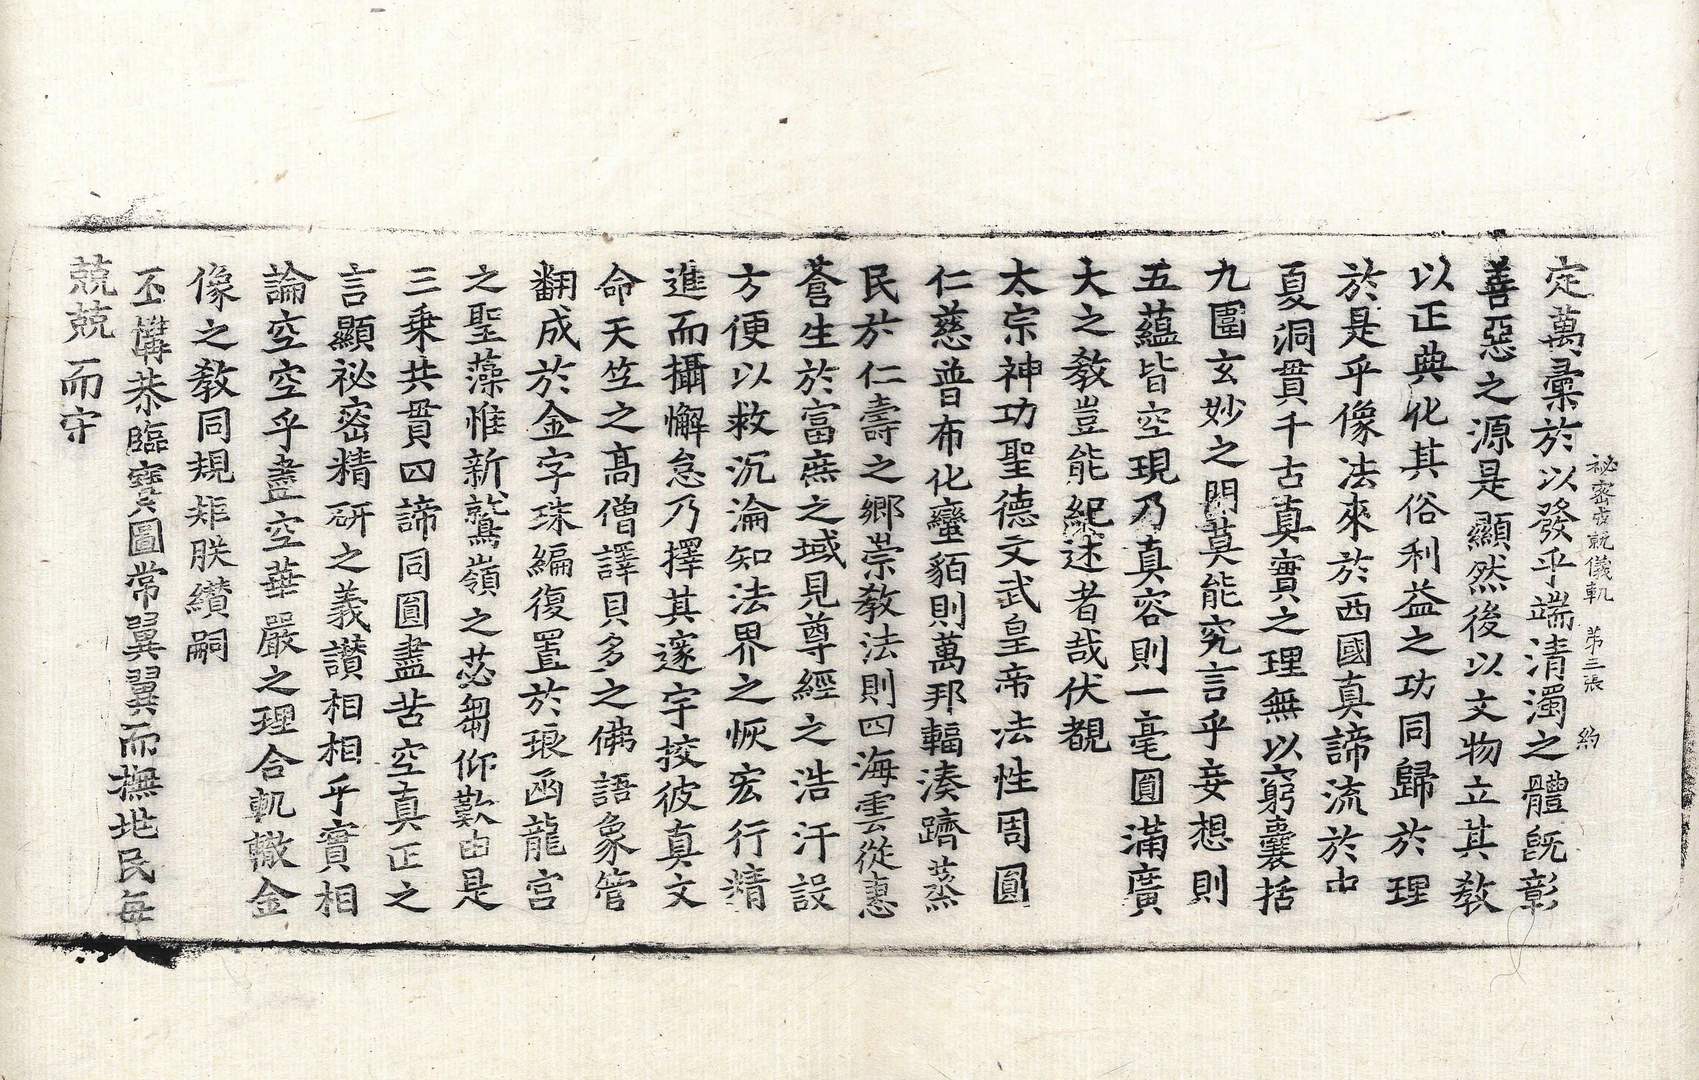 祕密成就儀軌 第三張 約
定萬彙於以發乎端清濁之體旣彰
善惡之源是顯然後以文物立其敎
以正典化其俗利益之功同歸於理
於是乎像法來於西國真諦流於中
夏洞貫千古真實之理無以窮囊括
九圍玄妙之門莫能究言乎妄想則
五蘊皆空現乃真容則一毫圓滿廣
大之敎豈能紀述者哉伏覩
太宗神功聖德文武皇帝法性周圓
仁慈普布化蠻貊則萬邦輻湊躋蒸
民於仁壽之鄉崇敎法則四海雲從惠
蒼生於富庶之域見尊經之浩汗設
方便以救沉淪知法界之恢宏行精
進而攝懈怠乃擇其邃宇挍彼真文
命天竺之高僧譯貝多之佛語象管
翻成於金字珠編復置於琅函龍宮
之聖藻惟新鷲嶺之苾芻仰歎由是
三乘共貫四諦同圓盡苦空真正之
言顯祕密精研之義讃相相乎實相
論空空乎盡空華嚴之理合軌轍金
像之敎同規矩朕纘嗣
丕構恭臨寶圖常翼翼而撫兆民每
兢兢而守